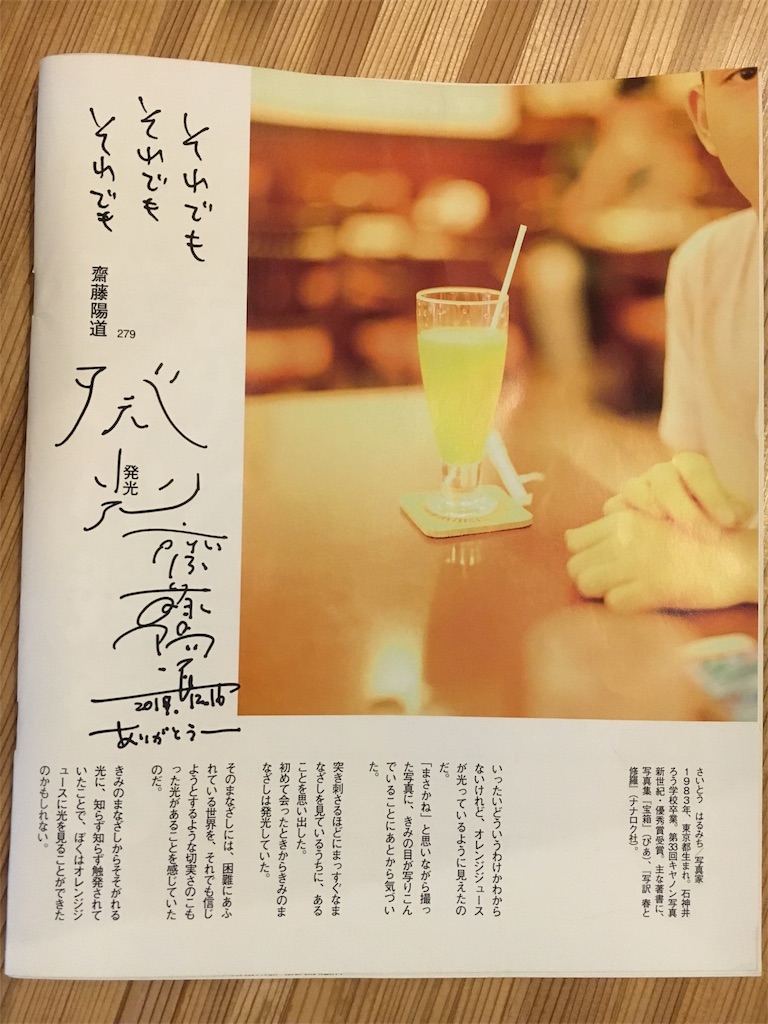 それでも
それでも
それでも
齋藤陽道
279
発光
発光
齋藤陽道
2019.12.16
ありがとうー
さいとう はるみち／写真家
1983年、東京都生まれ。石神井
ろう学校卒業。第33回キヤノン写真
新世紀・優秀賞受賞。主な著書に、
写真集『宝箱』（ぴあ）、『写訳 春と
修羅』（ナナロク社）。
いったいどういうわけかわから
ないけれど、オレンジジュース
が光っているように見えたの
だ。
「まさかね」と思いながら撮っ
た写真に、きみの目が写りこん
でいることにあとから気づい
た。
突き刺さるほどにまっすぐなま
なざしを見ているうちに、ある
ことを思い出した。
初めて会ったときからきみのま
なざしは発光していた。
そのまなざしには、困難にあふ
れている世界を、それでも信じ
ようとするような切実さのこも
った光があることを感じていた
のだ。
きみのまなざしからそそがれる
光に、知らず知らず触発されて
いたことで、ぼくはオレンジジ
ュースに光を見ることができた
のかもしれない。